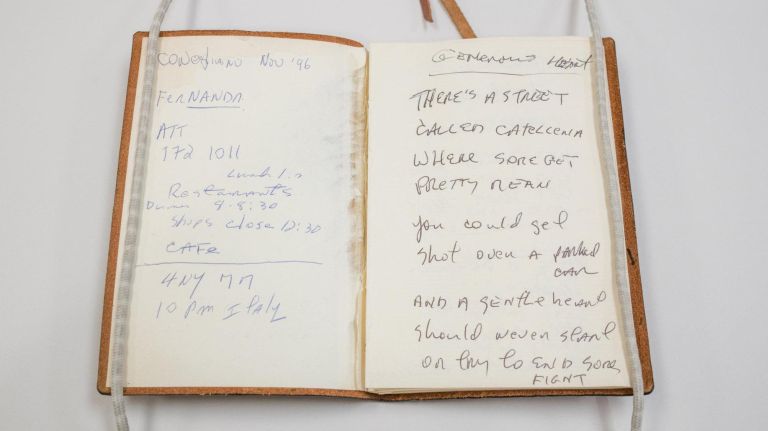 CONEGLIANO NOV '96
FERNANDA
ATT
172 1011
Lunch 1.0
Restaurants
Dinner 8-8:30
Shops close 12:30
CAFe
4NY
10 pm Italy
GENEROUS Heart
THERE'S A STREET
CALLED
WHERE SOME GET
PRETTY MEAN
you could get
shot over A PARKED
CAR
AND A gentle heart
should never start
or try to END some
FIGHT